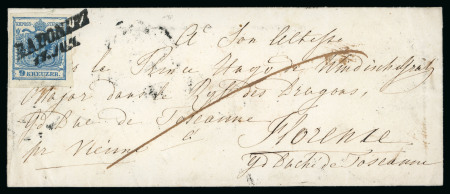 RADONITZ
12. JUL.
9 KREUZER.
A Son Altesse
le Prince Hugo de Windischgrätz
Major dans le Rgt des Dragons,
gd Duc de Toscanne
à
Florense
pr Vienne
gd Duché de Toscanne